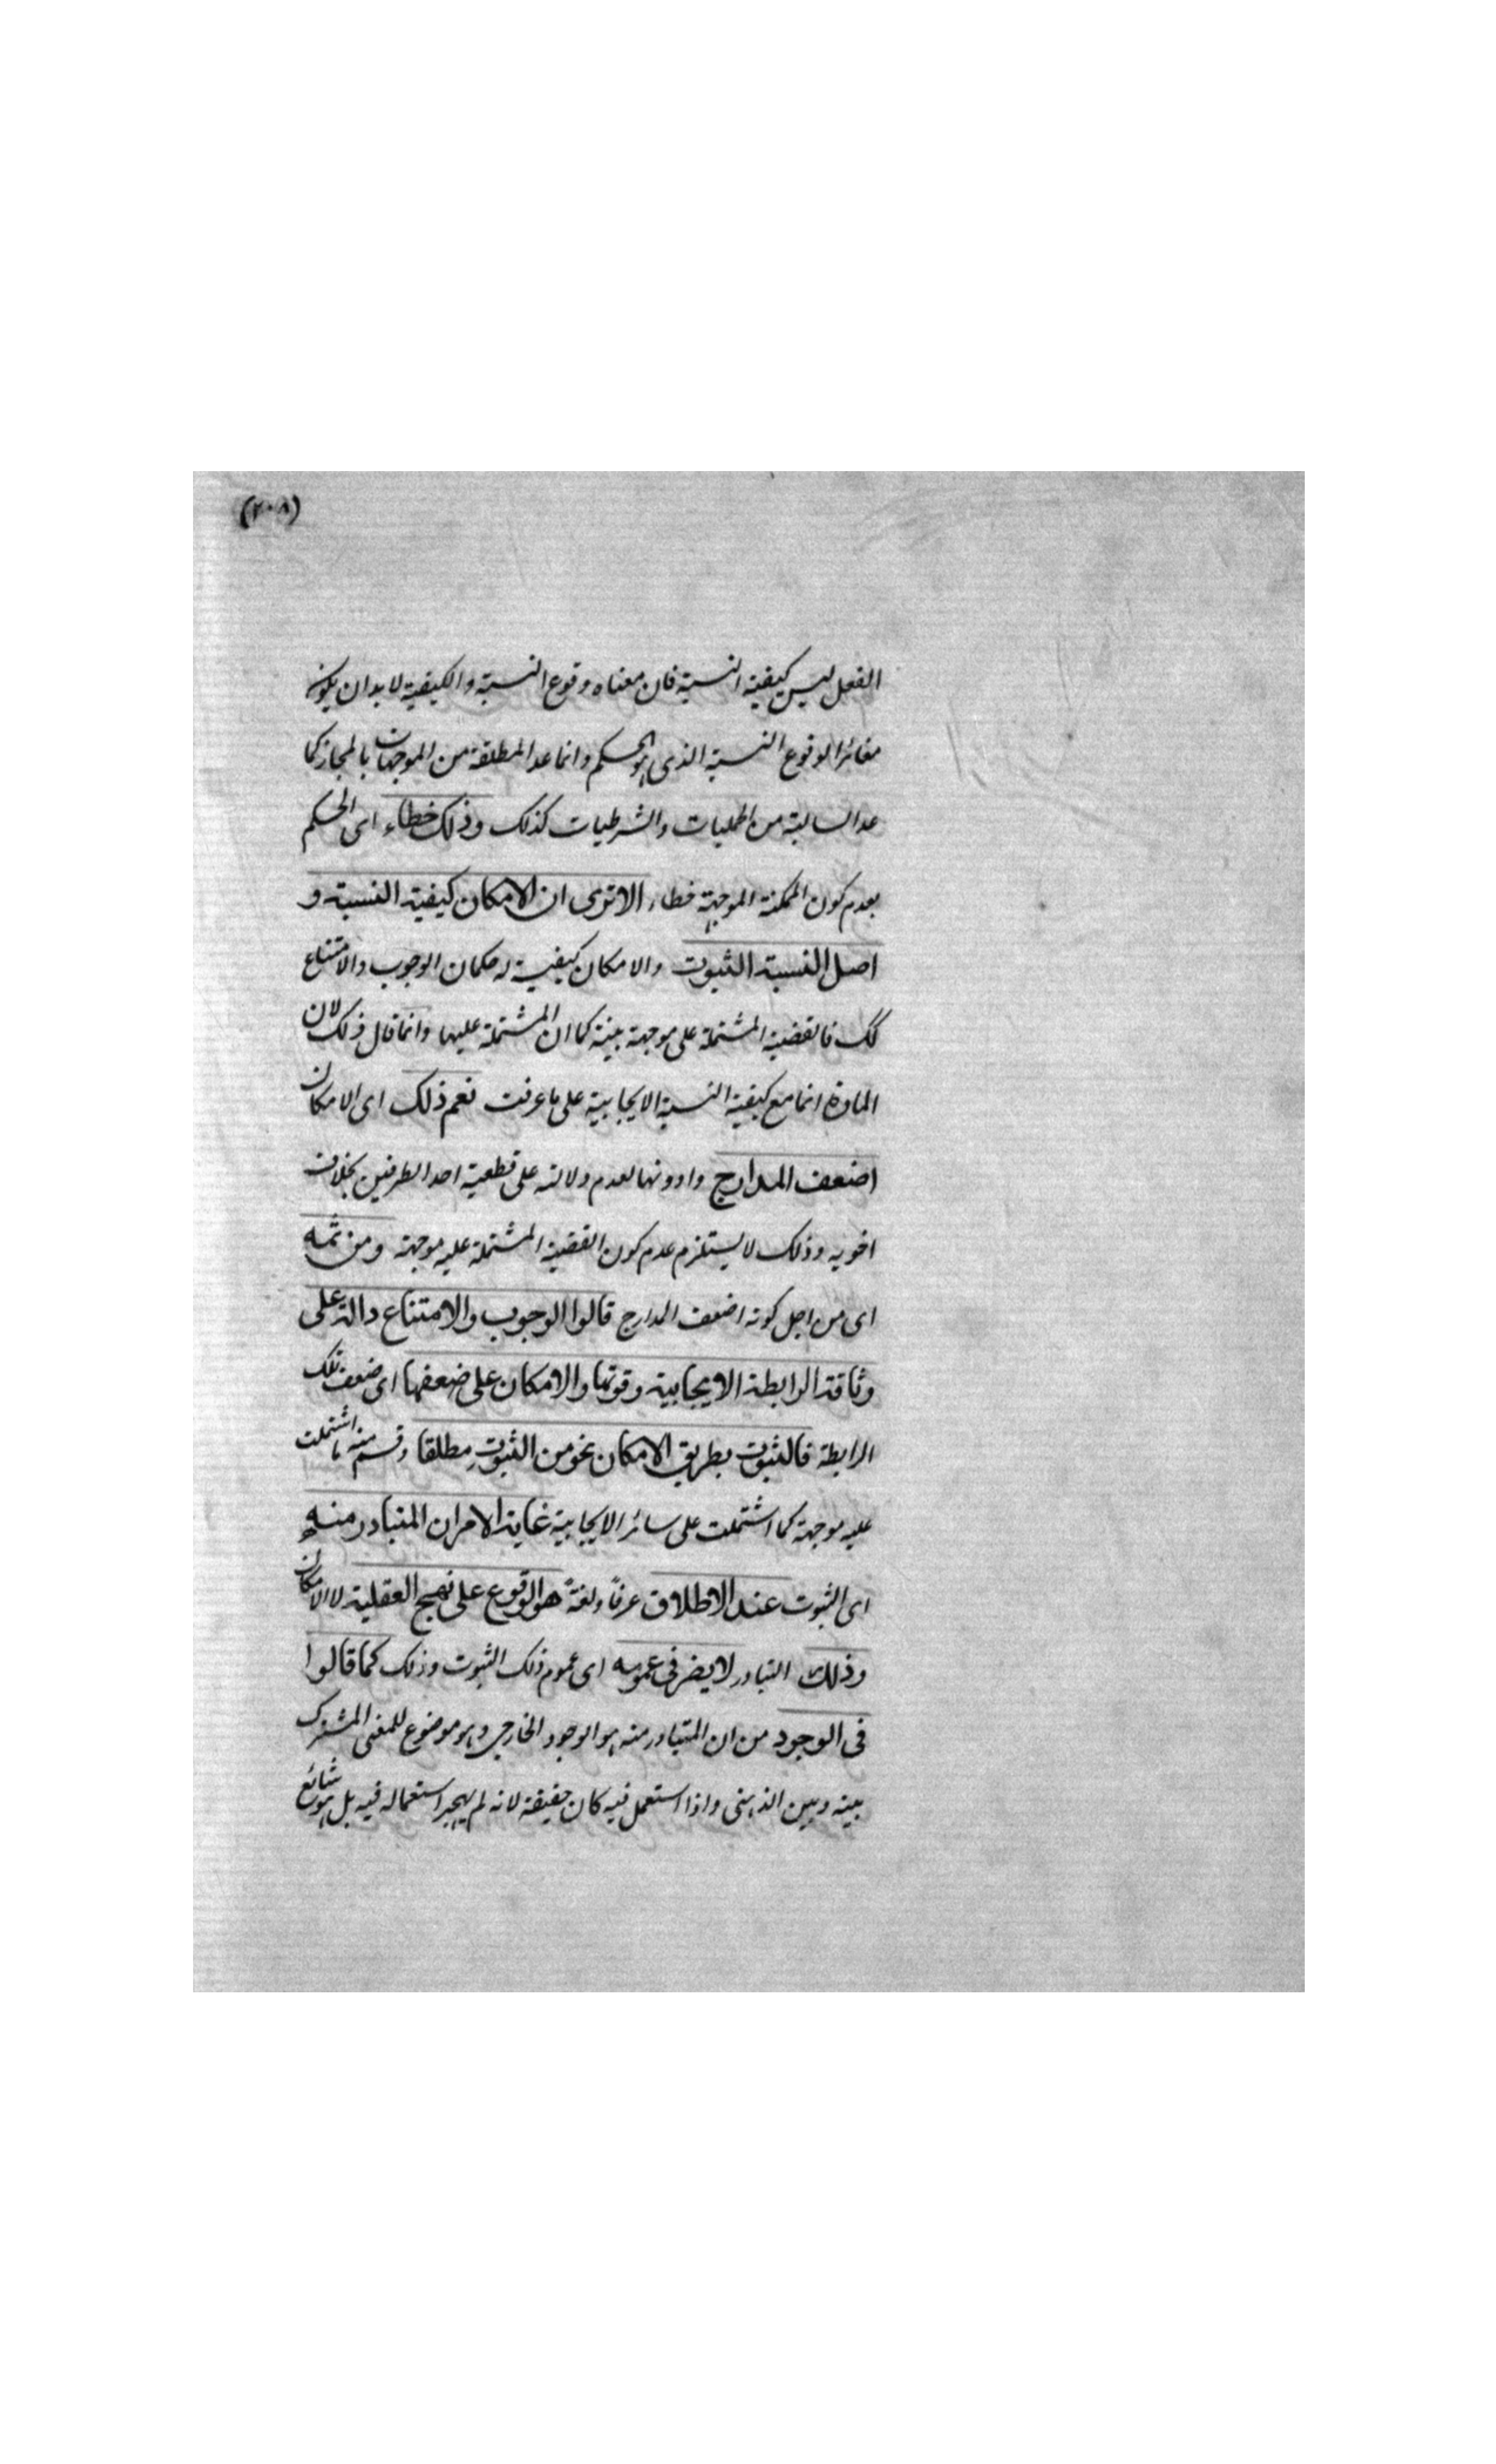 (٢٠٨)
الفعل ليس كيفية النسبة فان معناه وقوع النسبة والكيفية لا بد ان يكون
مغائرا لوقوع النسبة الذى هو الحكم وانما عد المطلقة من الموجهات بالمجاز كما
عد السالبة من الحمليات والشرطيات كذلك وذلك خطاء اى الحكم
بعدم كون الممكنة الموجهة خطاء الا ترى ان الامكان كيفية النسبة و
اصل النسبة الثبوت والامكان كيفية له كما ان الوجوب والامتناع
كك فالقضية المشتملة على موجهة بينة كما ان المشتملة عليها وانما قال ذلك لان
المادة انما مع كيفية النسبة الايجابية على ما عرفت نعم ذلك اى الامكان
اضعف المدارج وادونها لعدم دلالته على قطعية احد الطرفين بخلاف
اخويه وذلك لا يستلزم عدم كون القضية المشتملة عليه موجهة ومن ثمه
اى من اجل كونه اضعف المدارج قالوا الوجوب والامتناع دالة على
وثاقة الرابطة الايجابية وقوتها والامكان على ضعفها اى ضعف تلك
الرابطة فالثبوت بطريق الامكان نحو من الثبوت مطلقا وقسم منه ما اشتملت
عليه موجهة كما اشتملت على سائر الايجابية غاية الامر ان المتبادر منه
اى الثبوت عند الاطلاق عرفاً ولغةً هو الوقوع على نهج العقلية لا الامكان
وذلك التبادر لا يضر فى عمومه اى عموم ذلك الثبوت وذلك كما قالوا
فى الوجود من ان المتبادر منه هو الوجود الخارجى وهو موضوع للمعنى المشترك
بينه وبين الذهنى واذا استعمل فيه كان حقيقة لانه لم يهجر استعماله فيه بل هو شائع